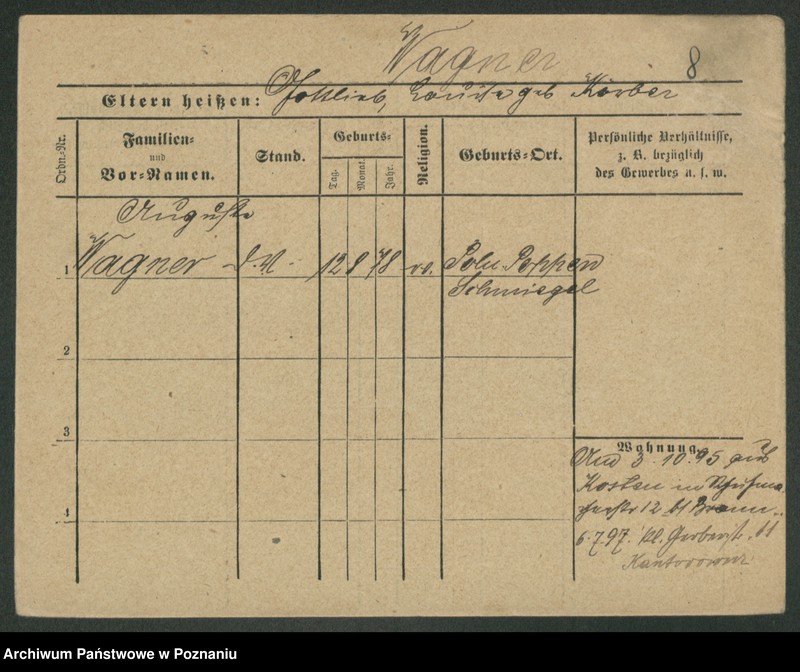 Wagner 8
Eltern heißen: Gottlieb, Louise geb Körber
Ordn.-Nr.
Familien-
und
Vor-Namen.
Stand.
Geburts-
Tag.
Monat.
Jahr.
Religion.
Geburts-Ort.
Persönliche Verhältnisse,
z. B. bezüglich
des Gewerbes u. s. w.
Auguste
1 Wagner d. M. 12 8 78 ev. Poln. Poppen
Schmiegel
2
3
4
Wohnung.
3. 10. 95 aus
Kosten in
12 bei Braun
6. 7. 97. kl. Gerberstr. 11
Kantorowicz
Archiwum Państwowe w Poznaniu